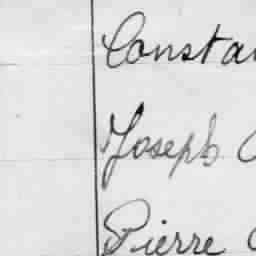 Constan
Joseph
Pierre